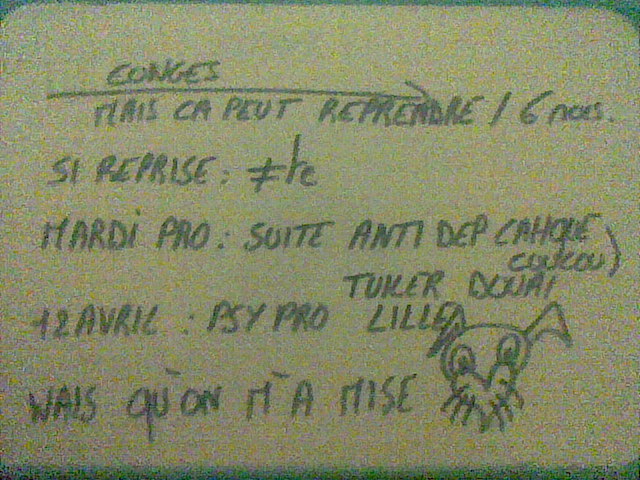 CONGES
MAIS CA PEUT REPRENDRE / 6 mois.
SI REPRISE : ≠
MARDI PRO : SUITE ANTI DEP
COUCOU)
DOUAI
12 AVRIL : PSY PRO LILLE
WAIS QU'ON M'A MISE